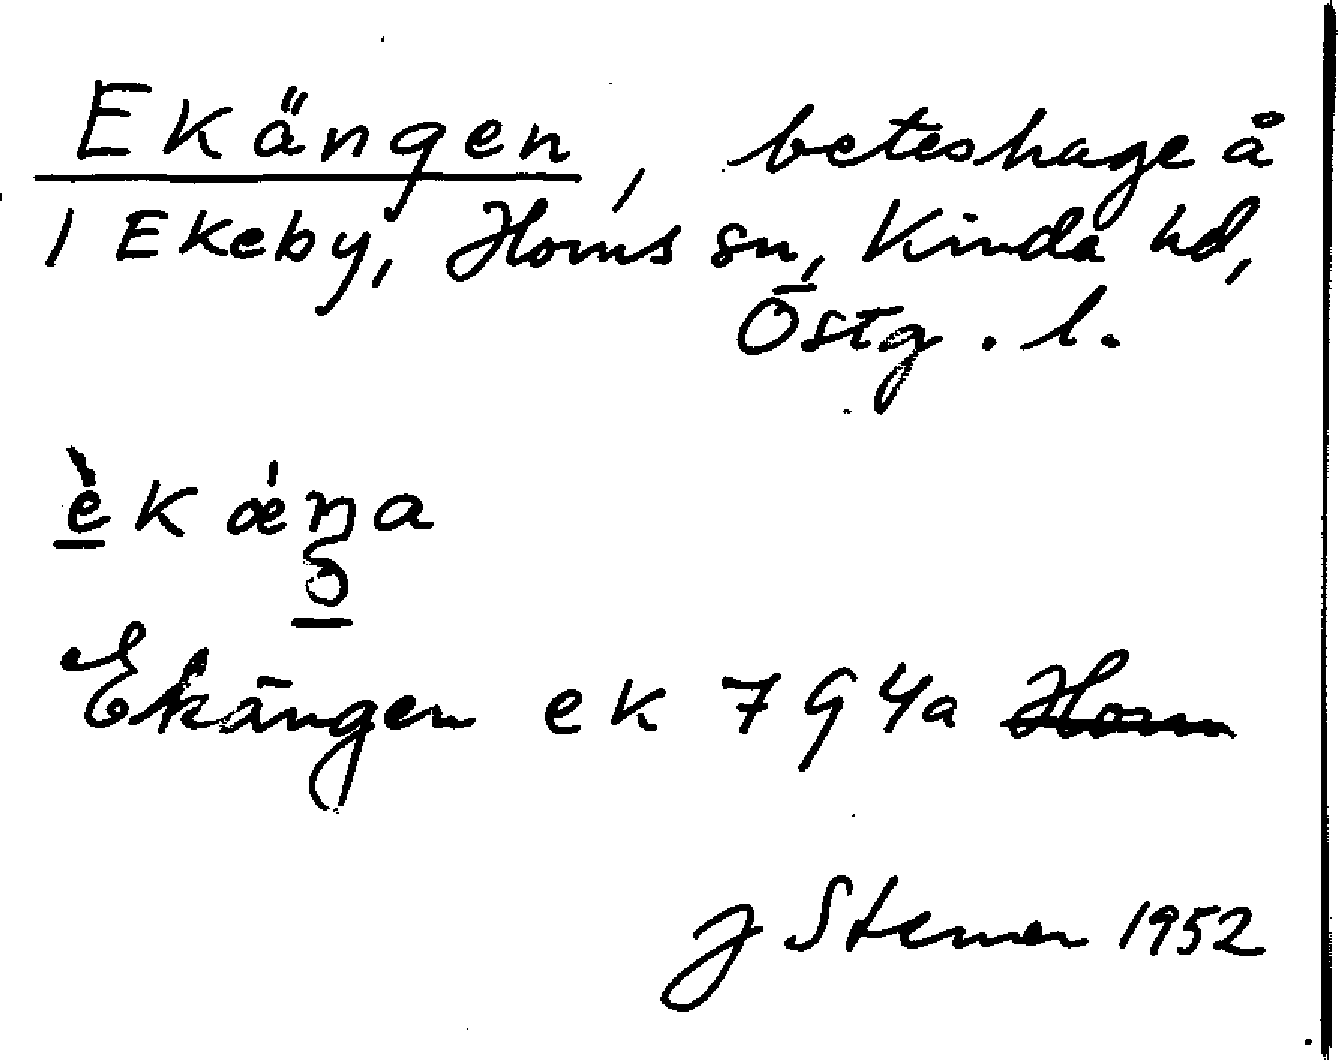 Ekängen, beteshage å
1 Ekeby, Horns sn, Kinda hd,
Östg. l.
èkǽŋa
Ekängen ek 7 9 4a Horn
J Sterner 1952